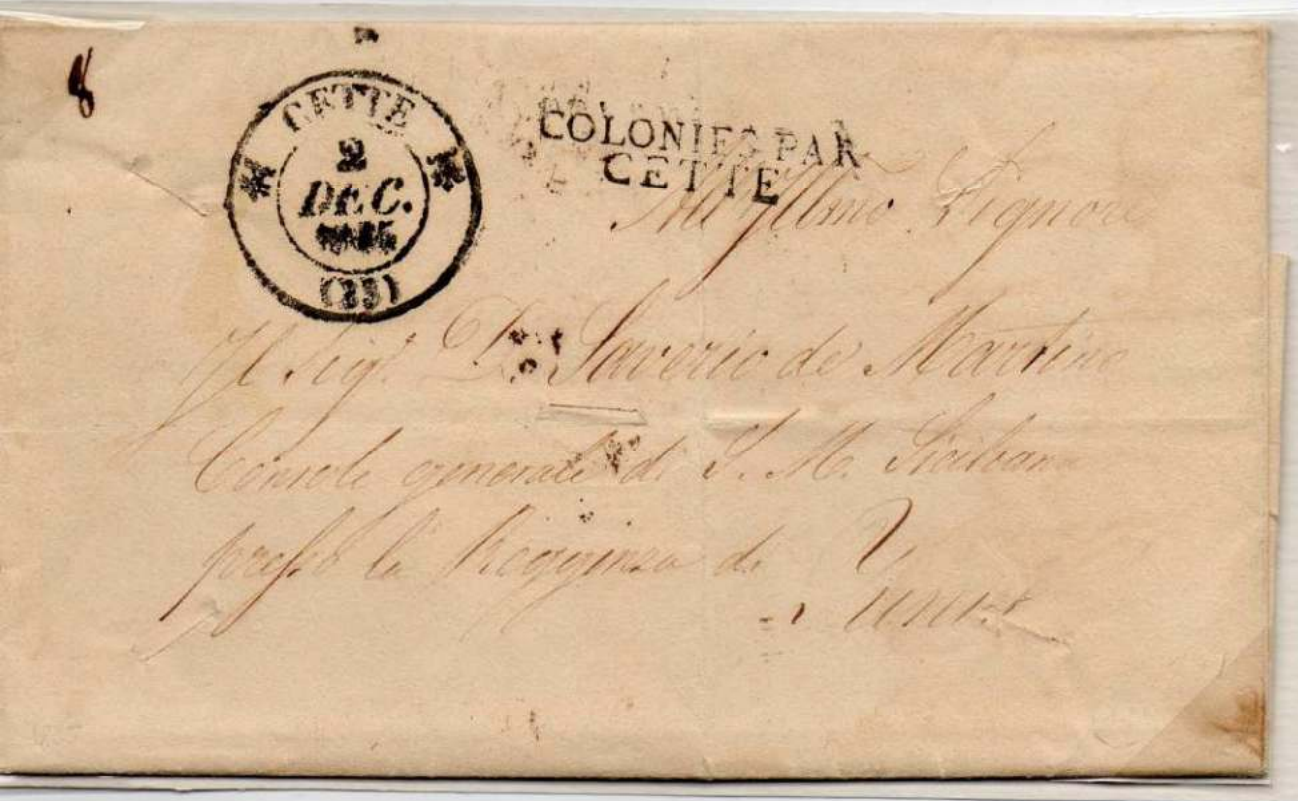 8
CETTE
2
DEC.
(33)
COLONIES PAR
CETTE
All' Illmo Signore
Il Sigr. D. Saverio de Martino
Console generale di S. M. Siciliana
presso la Reggenza di
Tunis